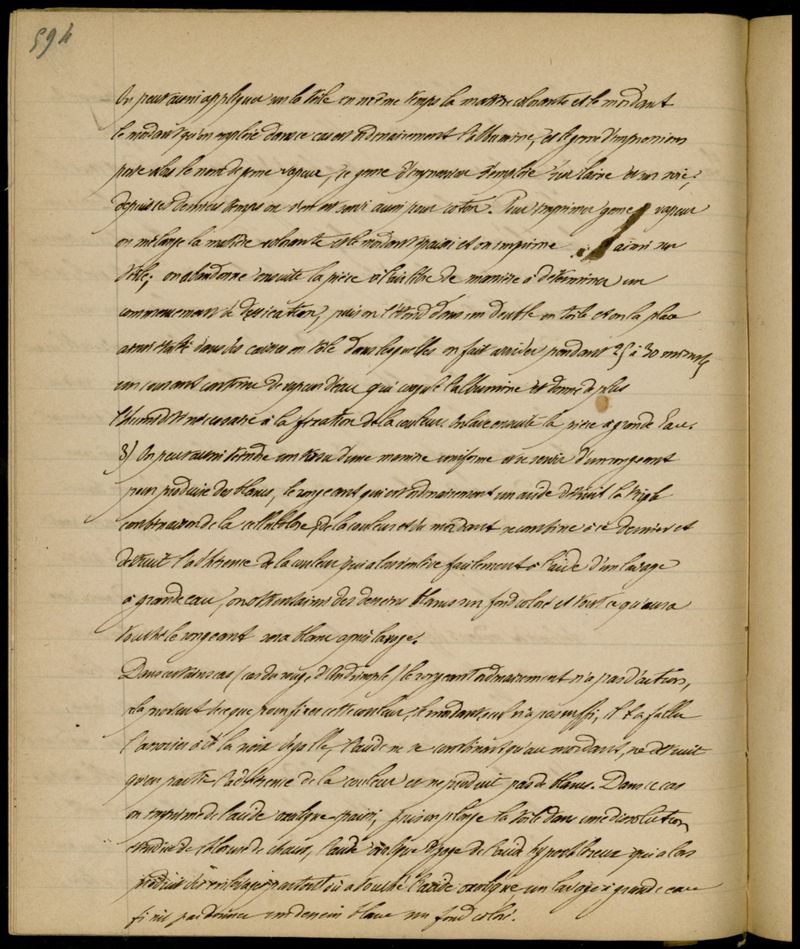 594
On peut aussi appliquer sur la toile en même temps la matière colorante et le mordant
le mordant qu'on emploie dans ce cas est ordinairement l'albumine, et le genre d'impression
porte alors le nom de genre vapeur, ce genre d'impression s'emploie sur laine et sur soie,
depuis ces derniers temps on s'en est servi aussi pour coton. Pour imprimer genre vapeur
on mélange la matière colorante et le mordant épaissi et on imprime ainsi sur
toile; on abandonne ensuite la pièce à l'air libre de manière à déterminer un
commencement de dessication, puis on l'étend dans un double en toile et on la place
dans des caisses en tôle dans lesquelles on fait arriver pendant 25 à 30 minutes
un courant continu de vapeur d'eau qui coagule l'albumine et donne de plus
l'humidité nécessaire à la fixation de la couleur. On lave ensuite la pièce à grande eau.
8) On peut aussi teindre un tissu d'une manière uniforme et se servir d'un rongeant
pour produire des blancs, le rongeant qui est ordinairement un acide détruit la triple
combinaison de la cellulose, de la couleur et du mordant se combine à ce dernier et
détruit l'adhérence de la couleur qui alors s'enlève facilement à l'aide d'un lavage
à grande eau, on obtient ainsi des dessins blancs sur fond coloré et tout ce qu'aura
touché le rongeant sera blanc après lavage.
Dans certains cas (cas du rouge d'Andrinople) le rongeant ordinairement n'a pas d'action,
cela tient à ce que pour fixer cette couleur, le mordant seul n'a pas suffi, il a fallu
l'acide ne se combinant qu'au mordant, ne détruit
qu'en partie l'adhérence de la couleur et ne produit pas de blanc. Dans ce cas
on imprime de l'acide oxalique épaissi, puis on plonge la toile dans une dissolution
étendue de chlorure de chaux, l'acide oxalique dégage de l'acide hypochloreux qui alors
partout où a touché l'acide oxalique un lavage à grande eau
finit par donner un dessin blanc sur fond coloré.